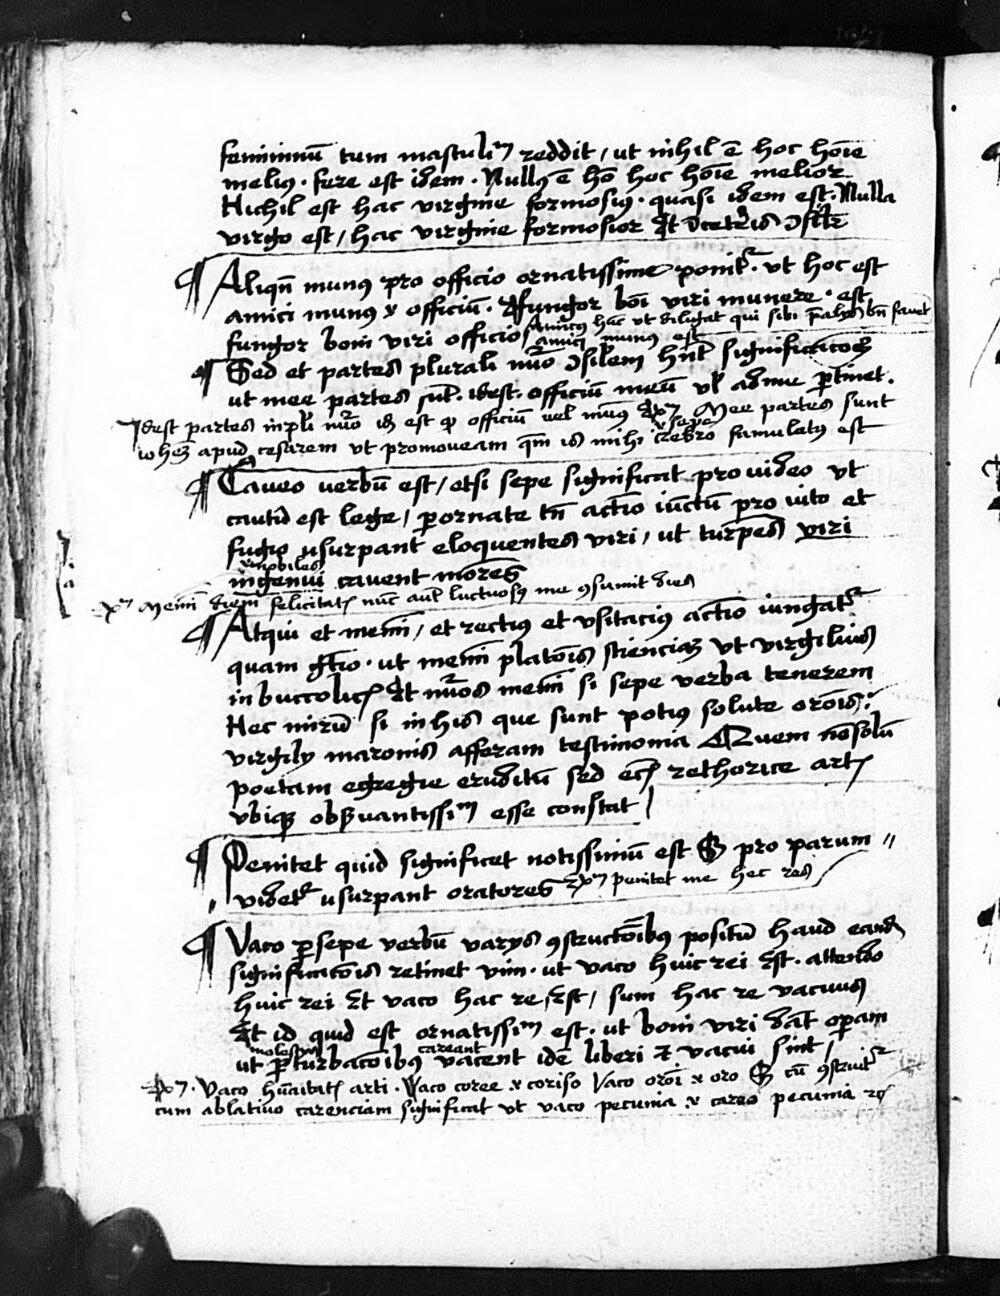 femininū tum masculinū reddit / ut nihil ē hoc hoīe
melius · fere est idem · Nullus ē hō hoc hoīe melior
Nichil est hac virgine formosius · quasi idem est · Nulla
virgo est / hac virgine formosior Et de ceteris
¶ Aliqn̄ munus pro officio ornatissime ponit᷑ · ut hoc est
amici munus officiū · fungor boni viri munere · est
fungor boni viri officio
Amicus hūc ut diligat qui sibi
amici munus est
¶ Sed et partes plurali nūo significatōem
ut mee partes sunt · idest · officiū meū vel ad me ꝑtinet ·
Idest partes in pli nūo id est officiū vel munus Mee partes sunt
apud cesarem ut promoveam is mihi crebro famulatus est
sepe
¶ Caveo verbū est / etsi sepe significat provideo ut
cautū est lege / ꝑornate tn̄ actīo iūctū pro vito et
fugio usurpant eloquentes viri / ut turpes viri
nobiles
ingenui cavent mores
Memini diem felicitatis nūc luctuosus me
¶ Atqui et memini / et rectius et usitacius actīo iungat᷑
quam gtīo · ut memini platonis sciencias ut virgilius
in buccolicis Et nūos memini si sepe verba tenerem
Nec mirū si in his que sunt potius solute orōis
virgily maronis afferam testimonia Quem nō solū
poetam egregie eruditū sed eciā rethorice artis
ubiqꝫ observantissimū esse constat
¶ Penitet quid significet notissimū est Sed pro parum
videt᷑ usurpant oratores penitet me hec res
¶ Vaco ꝑsepe verbū varys constructōibus positū haud eandē
significatōis retinet vim · ut vaco huic rei Est · attendo
huic rei Et vaco hac re Est / sum hac re vacuus
Et id quid est ornatissimū est · ut boni viri dāt oꝑam
molestys careant
ut ꝑturbacōibus vacent idē liberi et vacui sint
Vaco hūanitatis arti · Vaco Vaco orōi oro Sed cū construit᷑
cum ablativo carenciam significat ut vaco pecunia careo pecunia